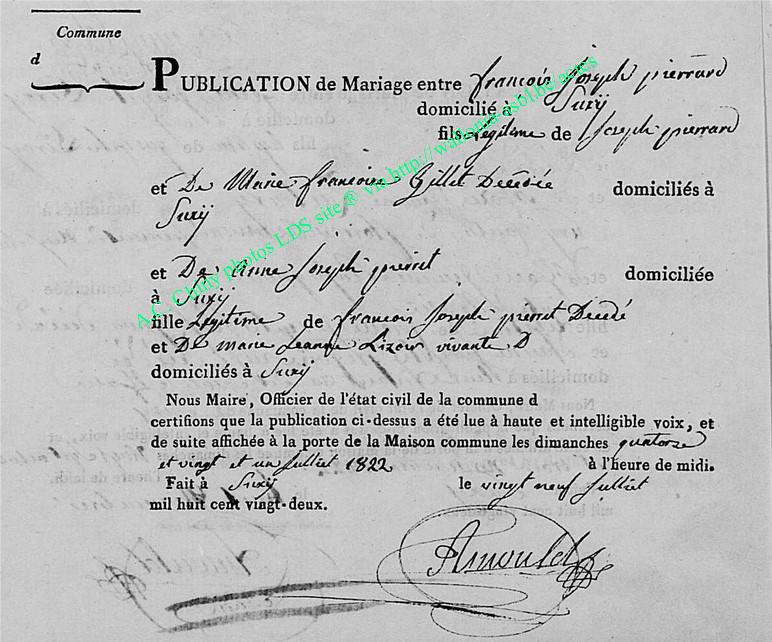 Commune
d
PUBLICATION de Mariage entre francois Joseph pierrard
domicilié à Suxÿ
fils Legitime de Joseph pierrard
et De Marie francoise Gillet Decedée domiciliés à
Suxÿ
et De anne Joseph pierret domiciliée
à Suxÿ
fille Legitime de francois Joseph pierret Decedé
et De marie Jeanne Lizoir vivante D
domiciliés à Suxÿ
Nous Maire, Officier de l'état civil de la commune d
certifions que la publication ci-dessus a été lue à haute et intelligible voix, et
de suite affichée à la porte de la Maison commune les dimanches quatorze
et vingt et un Julliet 1822 à l'heure de midi.
Fait à Suxÿ le vingt neuf Julliet
mil huit cent vingt-deux.
Arnould
A.C. Chiny photos LDS site ® via http://wallonia-asbl.be/actes